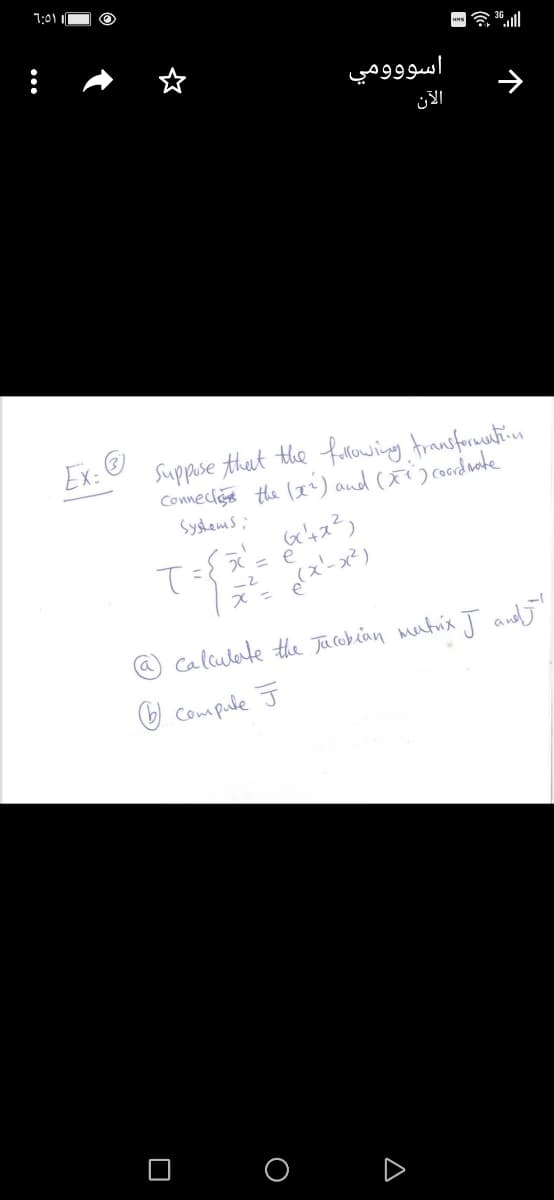 ٦:٥١
HMS 3G
اسوووومي
الآن
Ex: ③ Suppose that the following transformation
connects the (xⁱ) and (x̄ⁱ) coordinate
Systems:
T = { x̄¹ = e^(x¹+x²)
x̄² = e^(x¹-x²)
ⓐ calculate the Jacobian matrix J and J⁻¹
ⓑ compute J̄